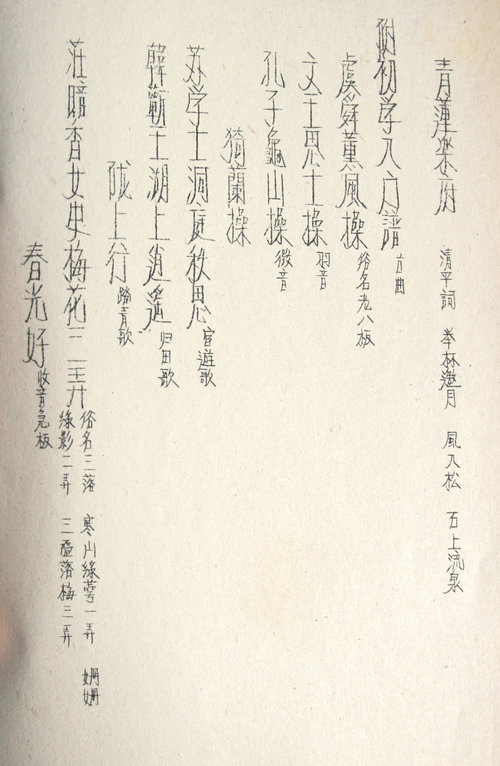 青蓮樂府 清平詞 举杯邀月 風入松 石上流泉
附初学入门譜 古曲
虞舜薰風操 俗名老八板
文王思士操 羽音
孔子龜山操 徵音
猗蘭操
苏学士洞庭秋思 宦遊歌
韓蘄王湖上逍遥 归田歌
陇上行 踏青歌
莊暗香女史梅花三弄 俗名三落 寒山綠萼一弄 姍姍綠影二弄 三疊落梅三弄
春光好 收音急板